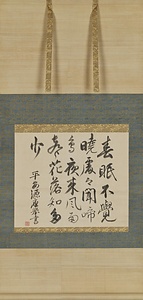 春眠不覺
曉處々聞啼
鳥夜来風雨
聲花落知多
少
平安源 書